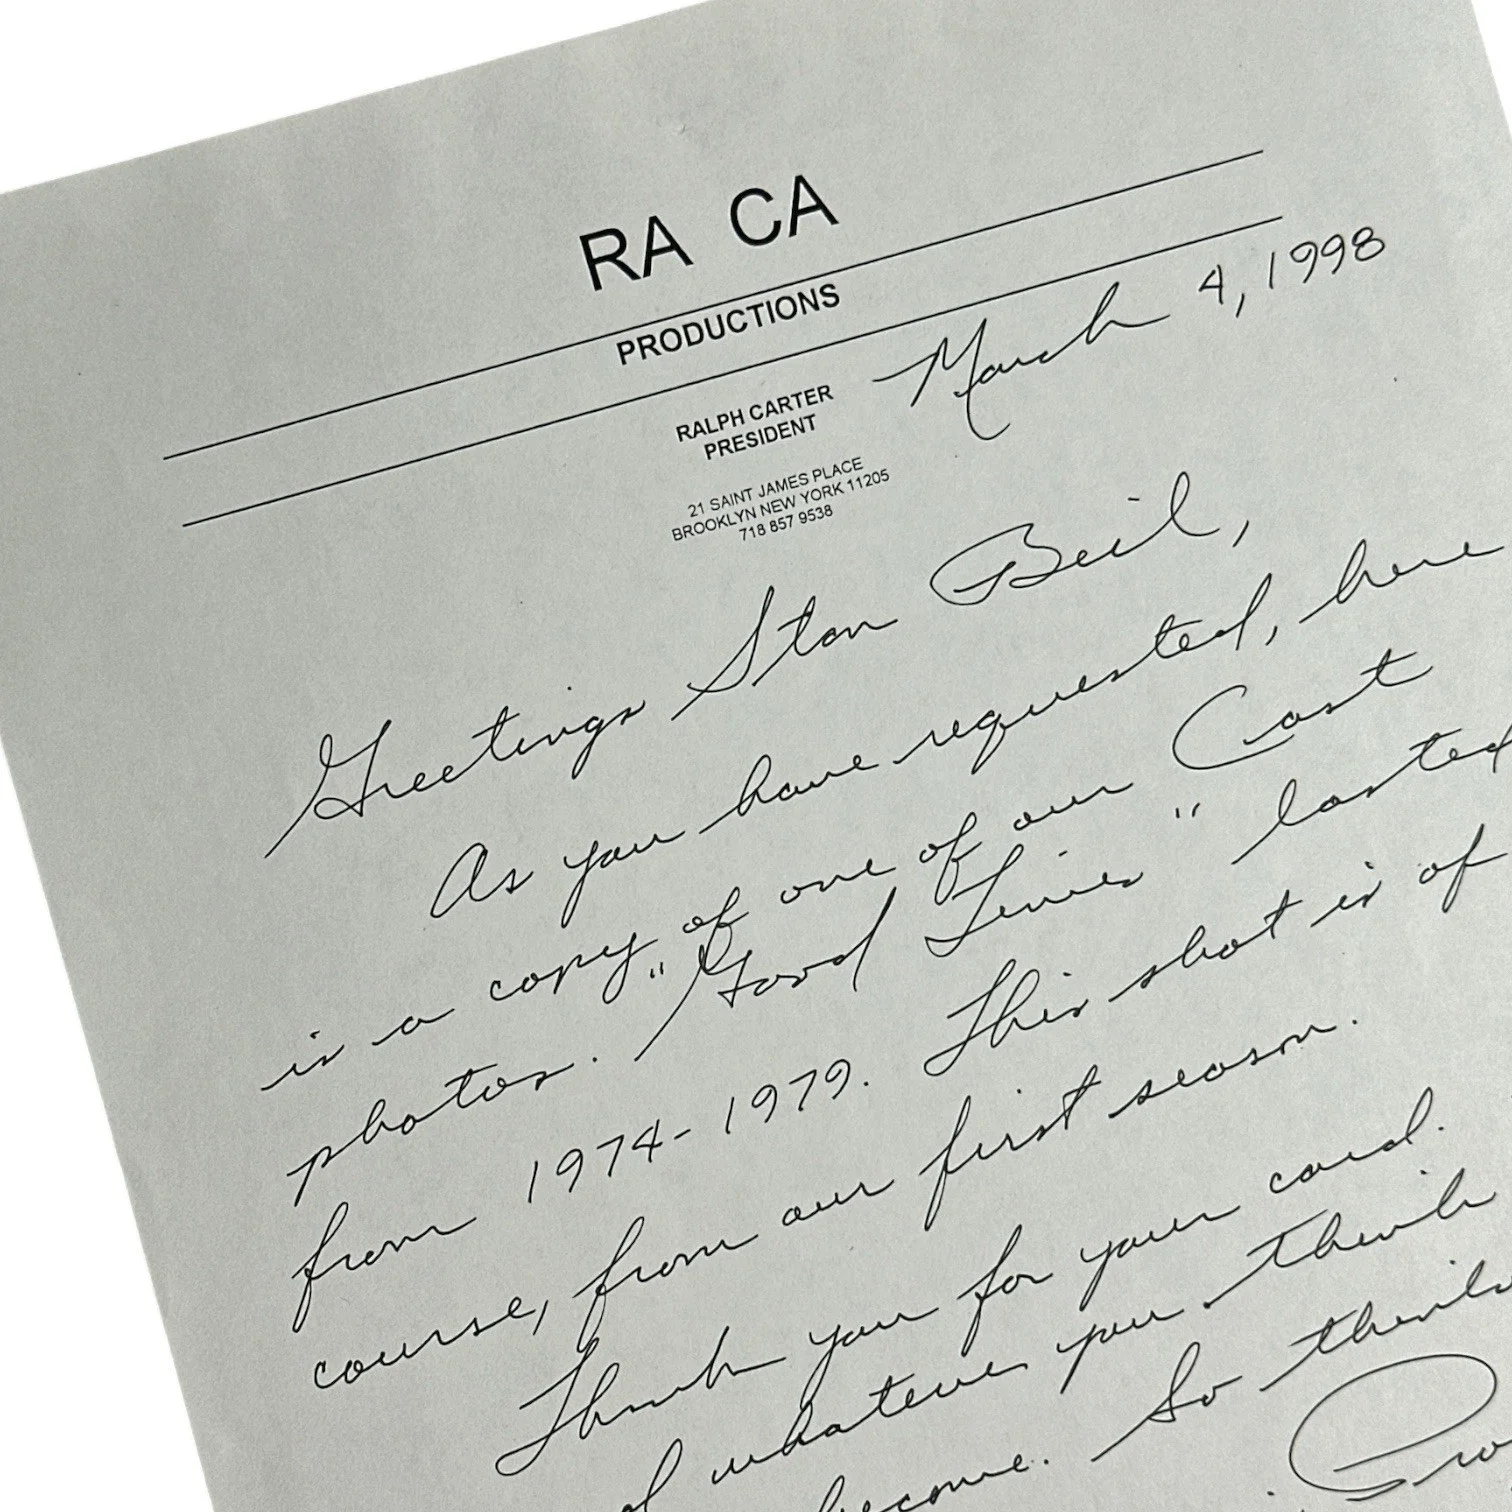 RA CA
PRODUCTIONS
RALPH CARTER
PRESIDENT
21 SAINT JAMES PLACE
BROOKLYN NEW YORK 11205
718 857 9538
March 4, 1998
Greetings Stan Beil,
As you have requested, here
is a copy of one of our Cast
photos. "Good Times" lasted
from 1974-1979. This shot is of
course, from our first season.
Thank you for your card.
whatever you think
become. So think